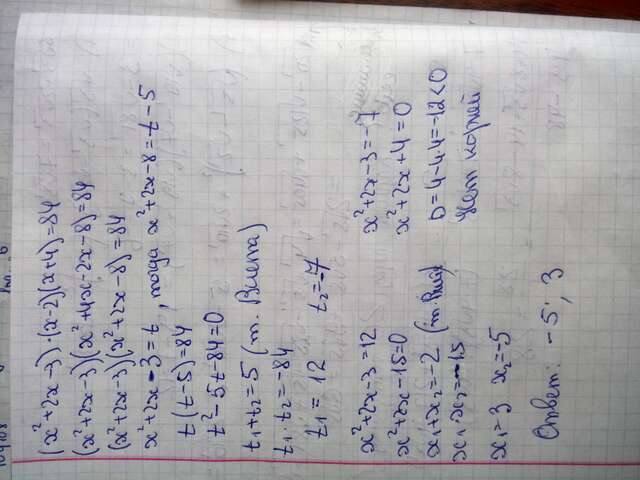 (x²+2x-3)·(x-2)(x+4)=84
(x²+2x-3)(x²+4x-2x-8)=84
(x²+2x-3)(x²+2x-8)=84
x²+2x-3=t, тогда x²+2x-8=t-5
t(t-5)=84
t²-5t-84=0
t₁+t₂=5 (т. Виета)
t₁·t₂=-84
t₁=12 t₂=-7
x²+2x-3=12
x²+2x-15=0
x₁+x₂=-2 (т. Виет)
x₁·x₂=-15
x₁=3 x₂=-5
x²+2x-3=-7
x²+2x+4=0
D=4-4·4=-12<0
нет корней
Ответ: -5; 3